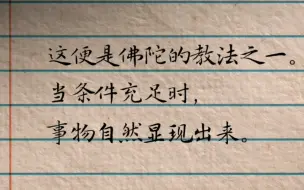 这便是佛陀的教法之一。
当条件充足时，
事物自然显现出来。